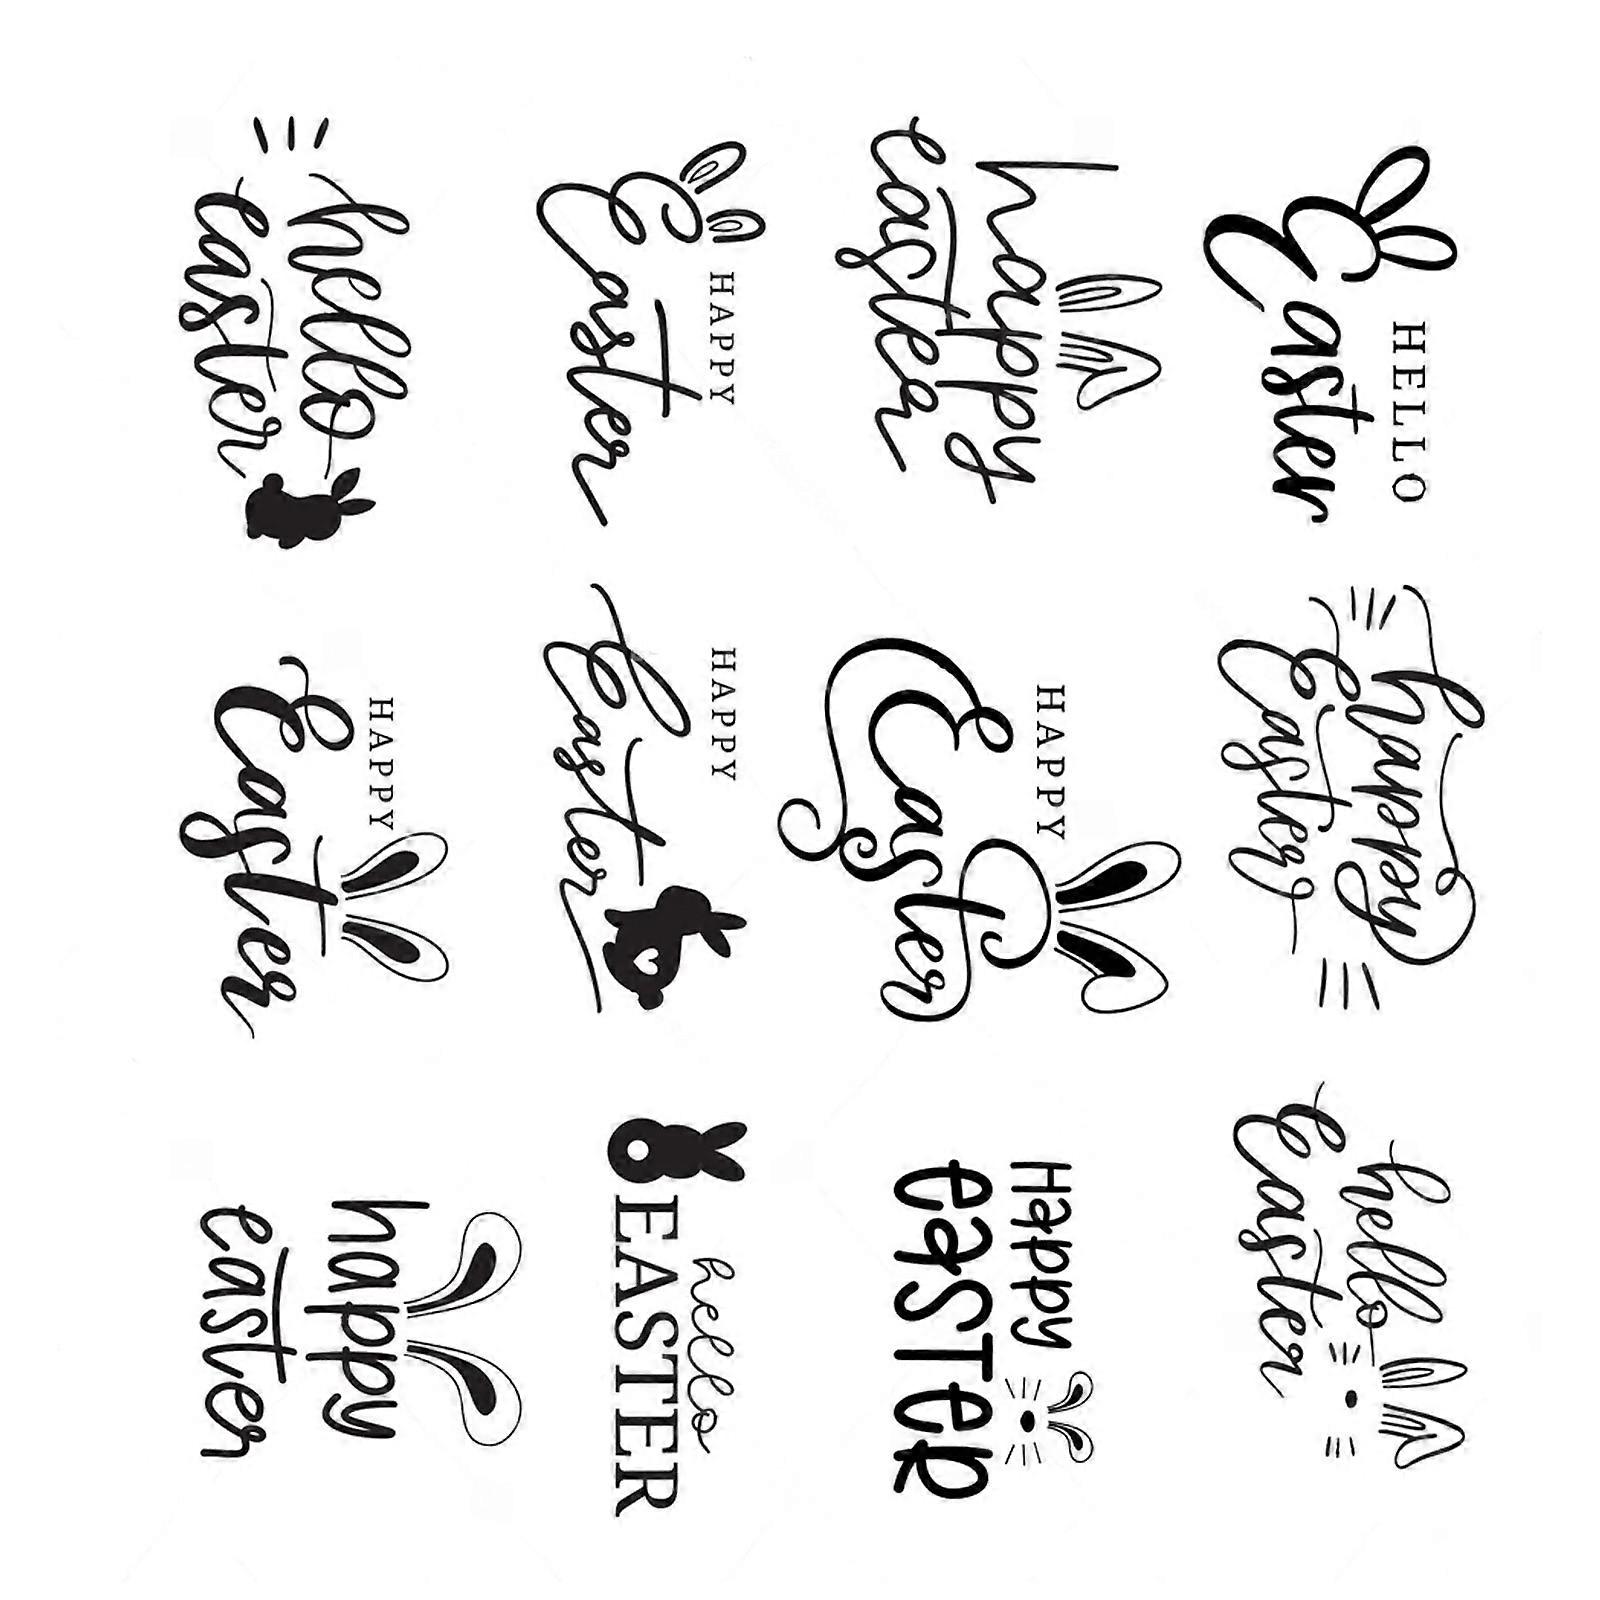 HELLO
Easter
happy
Easter
hello
Easter
happy
easter
HAPPY
Easter
Happy
eaSTeR
HAPPY
Easter
HAPPY
Easter
hello
EASTER
hello
easter
HAPPY
Easter
happy
easter